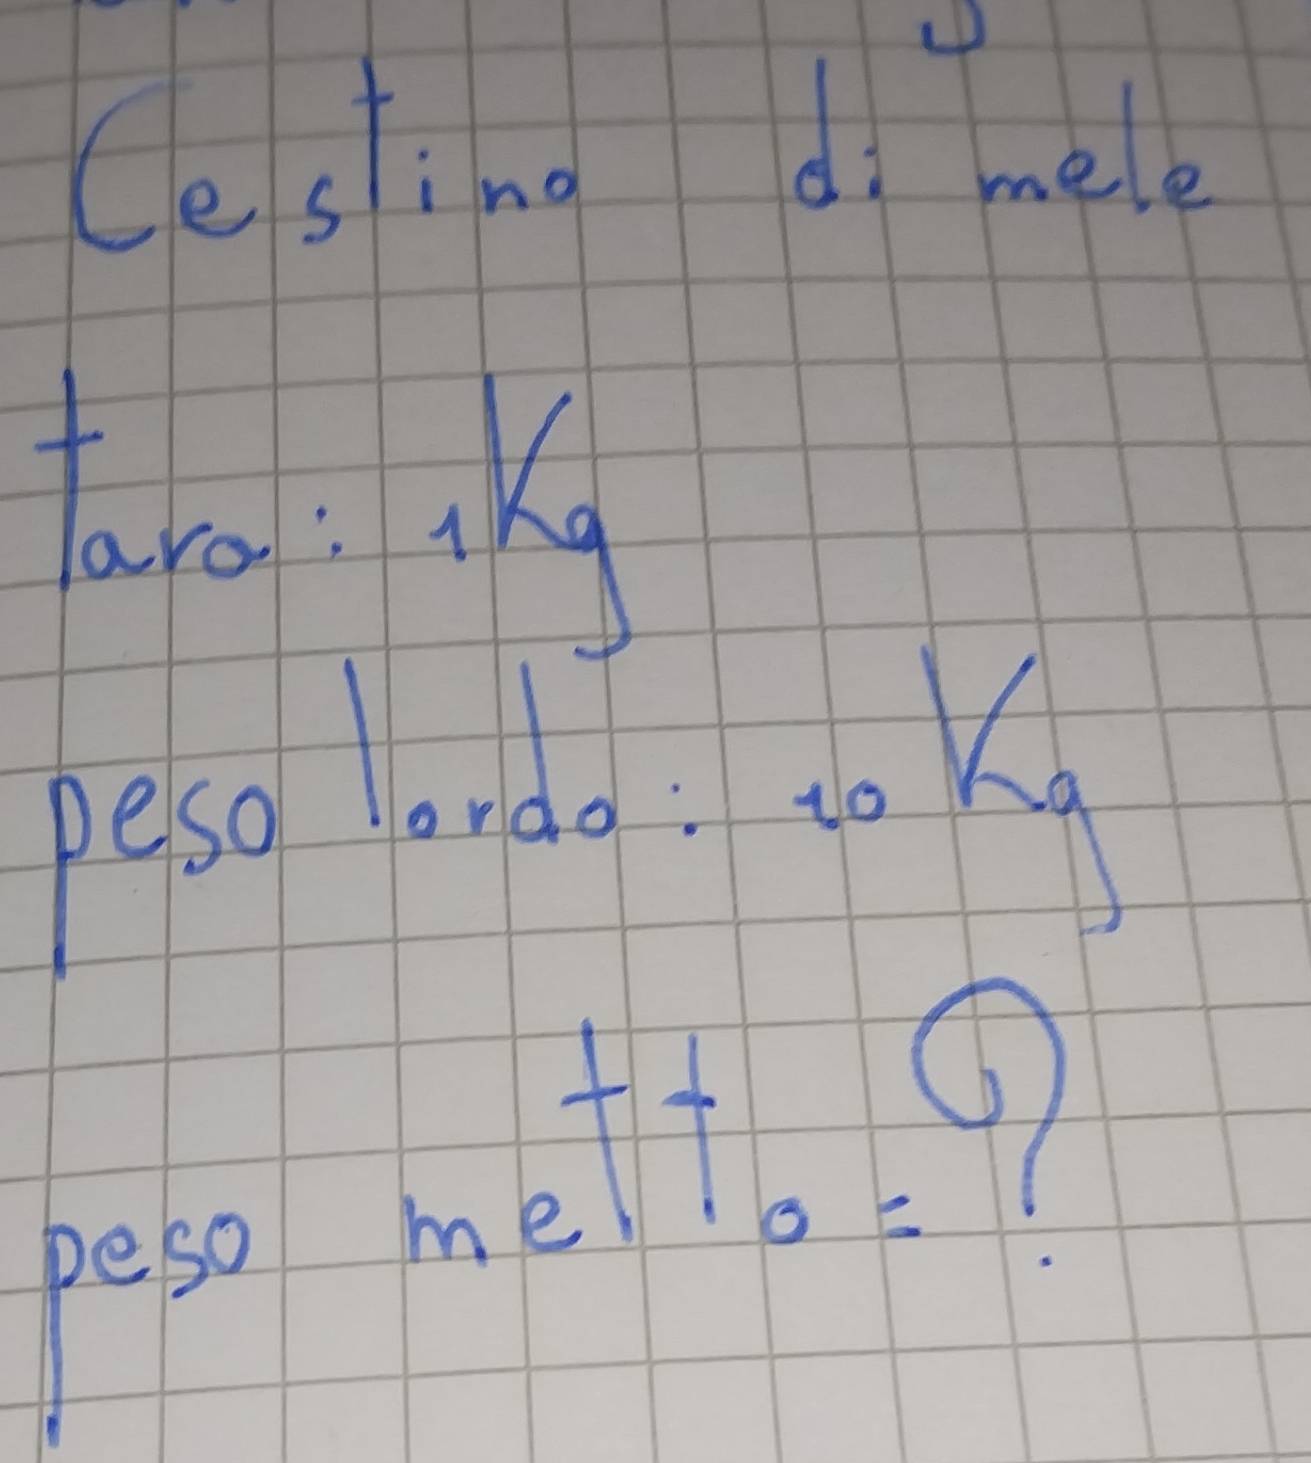 Cestino di mele
tara: 1Kg
peso lordo: 10 Kg
peso metto = ?